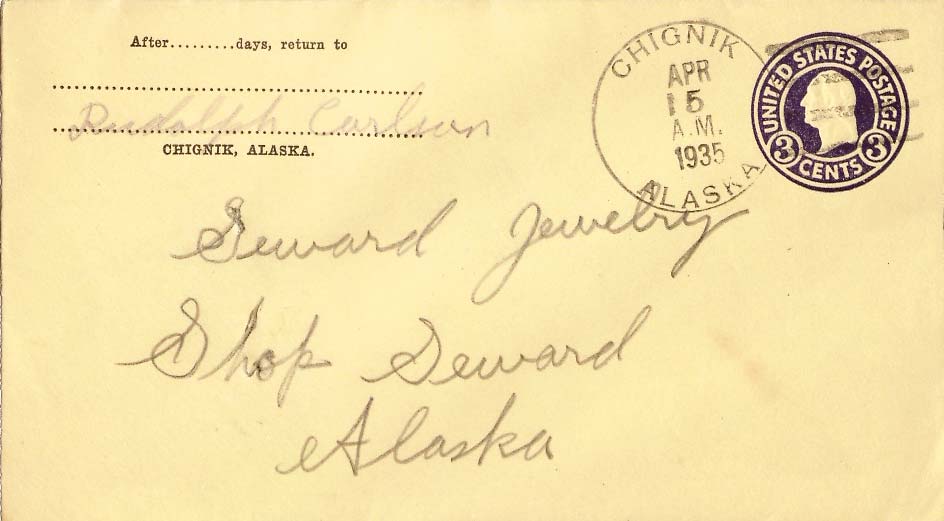 After.........days, return to
Rudolph Carlson
CHIGNIK, ALASKA.
CHIGNIK
APR
15
A.M.
1935
ALASKA
UNITED STATES POSTAGE
3 CENTS 3
Seward Jewelry
Shop Seward
Alaska